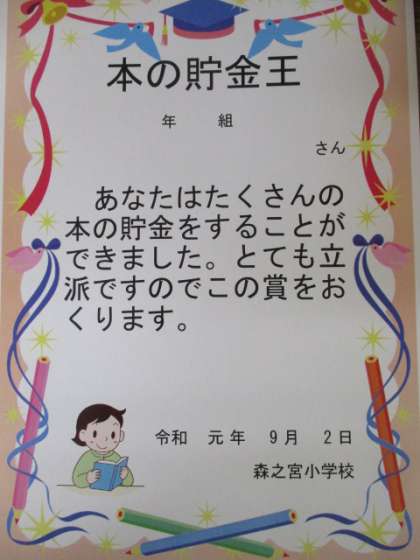 本の貯金王
年　組
さん
あなたはたくさんの
本の貯金をすることが
できました。とても立
派ですのでこの賞をお
くります。
令和　元年　9月　2日
森之宮小学校